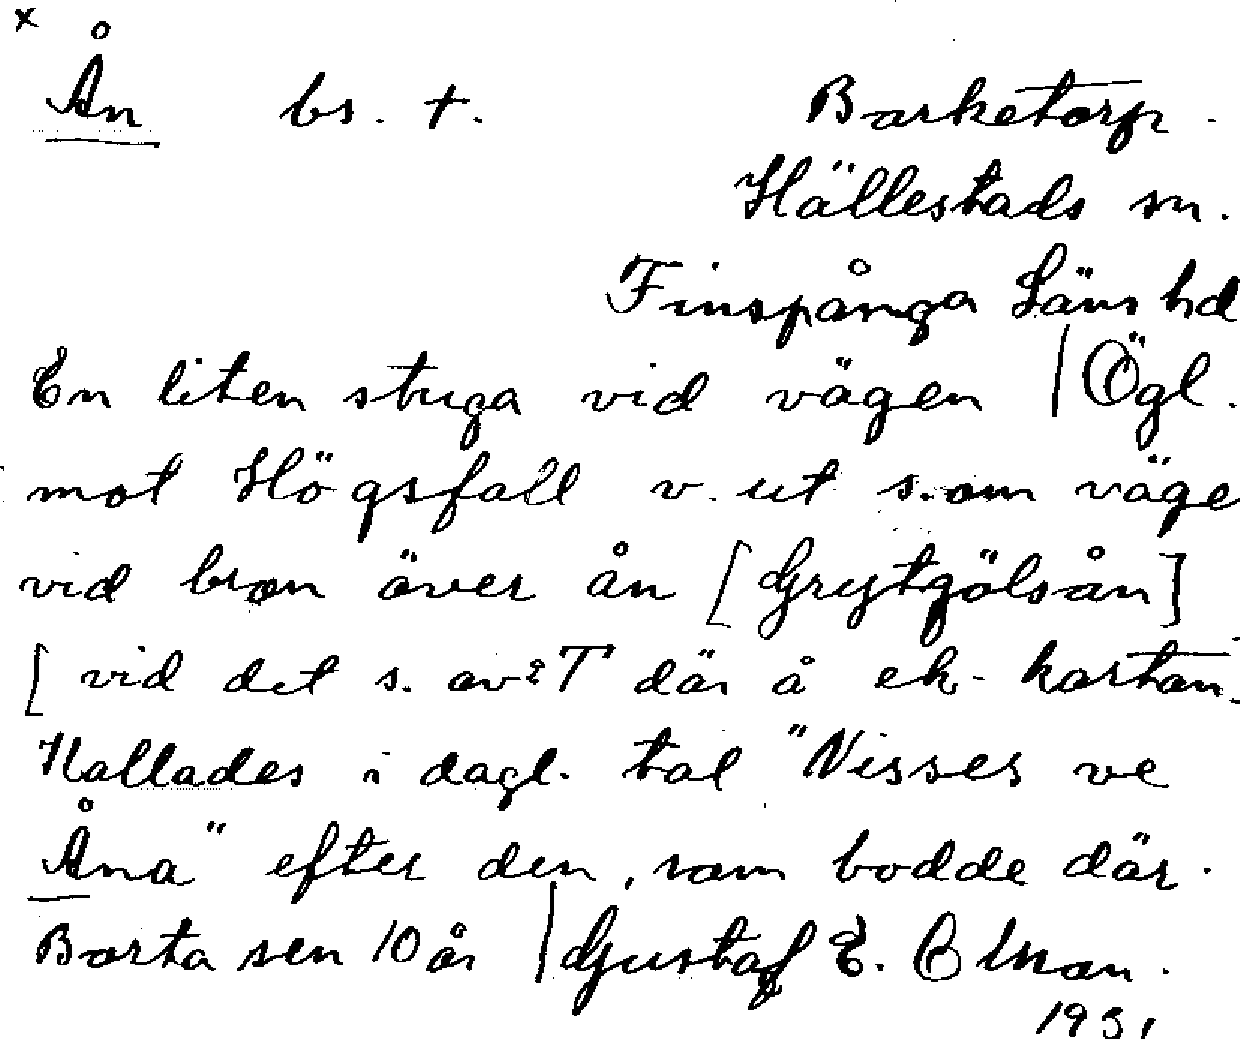 x
Ån bs. †. Borketorp.
Hällestads sn.
Finspånga Läns hd
En liten stuga vid vägen | Ögl.
mot Högsfall v. ut s. om väge
vid bron över ån [Grytgölsån]
[vid det s. av T där å ek. kartan.
Kallades i dagl. tal "Nisses ve
Åna" efter den, som bodde där.
Borta sen 10 år | Gustaf E.
1931